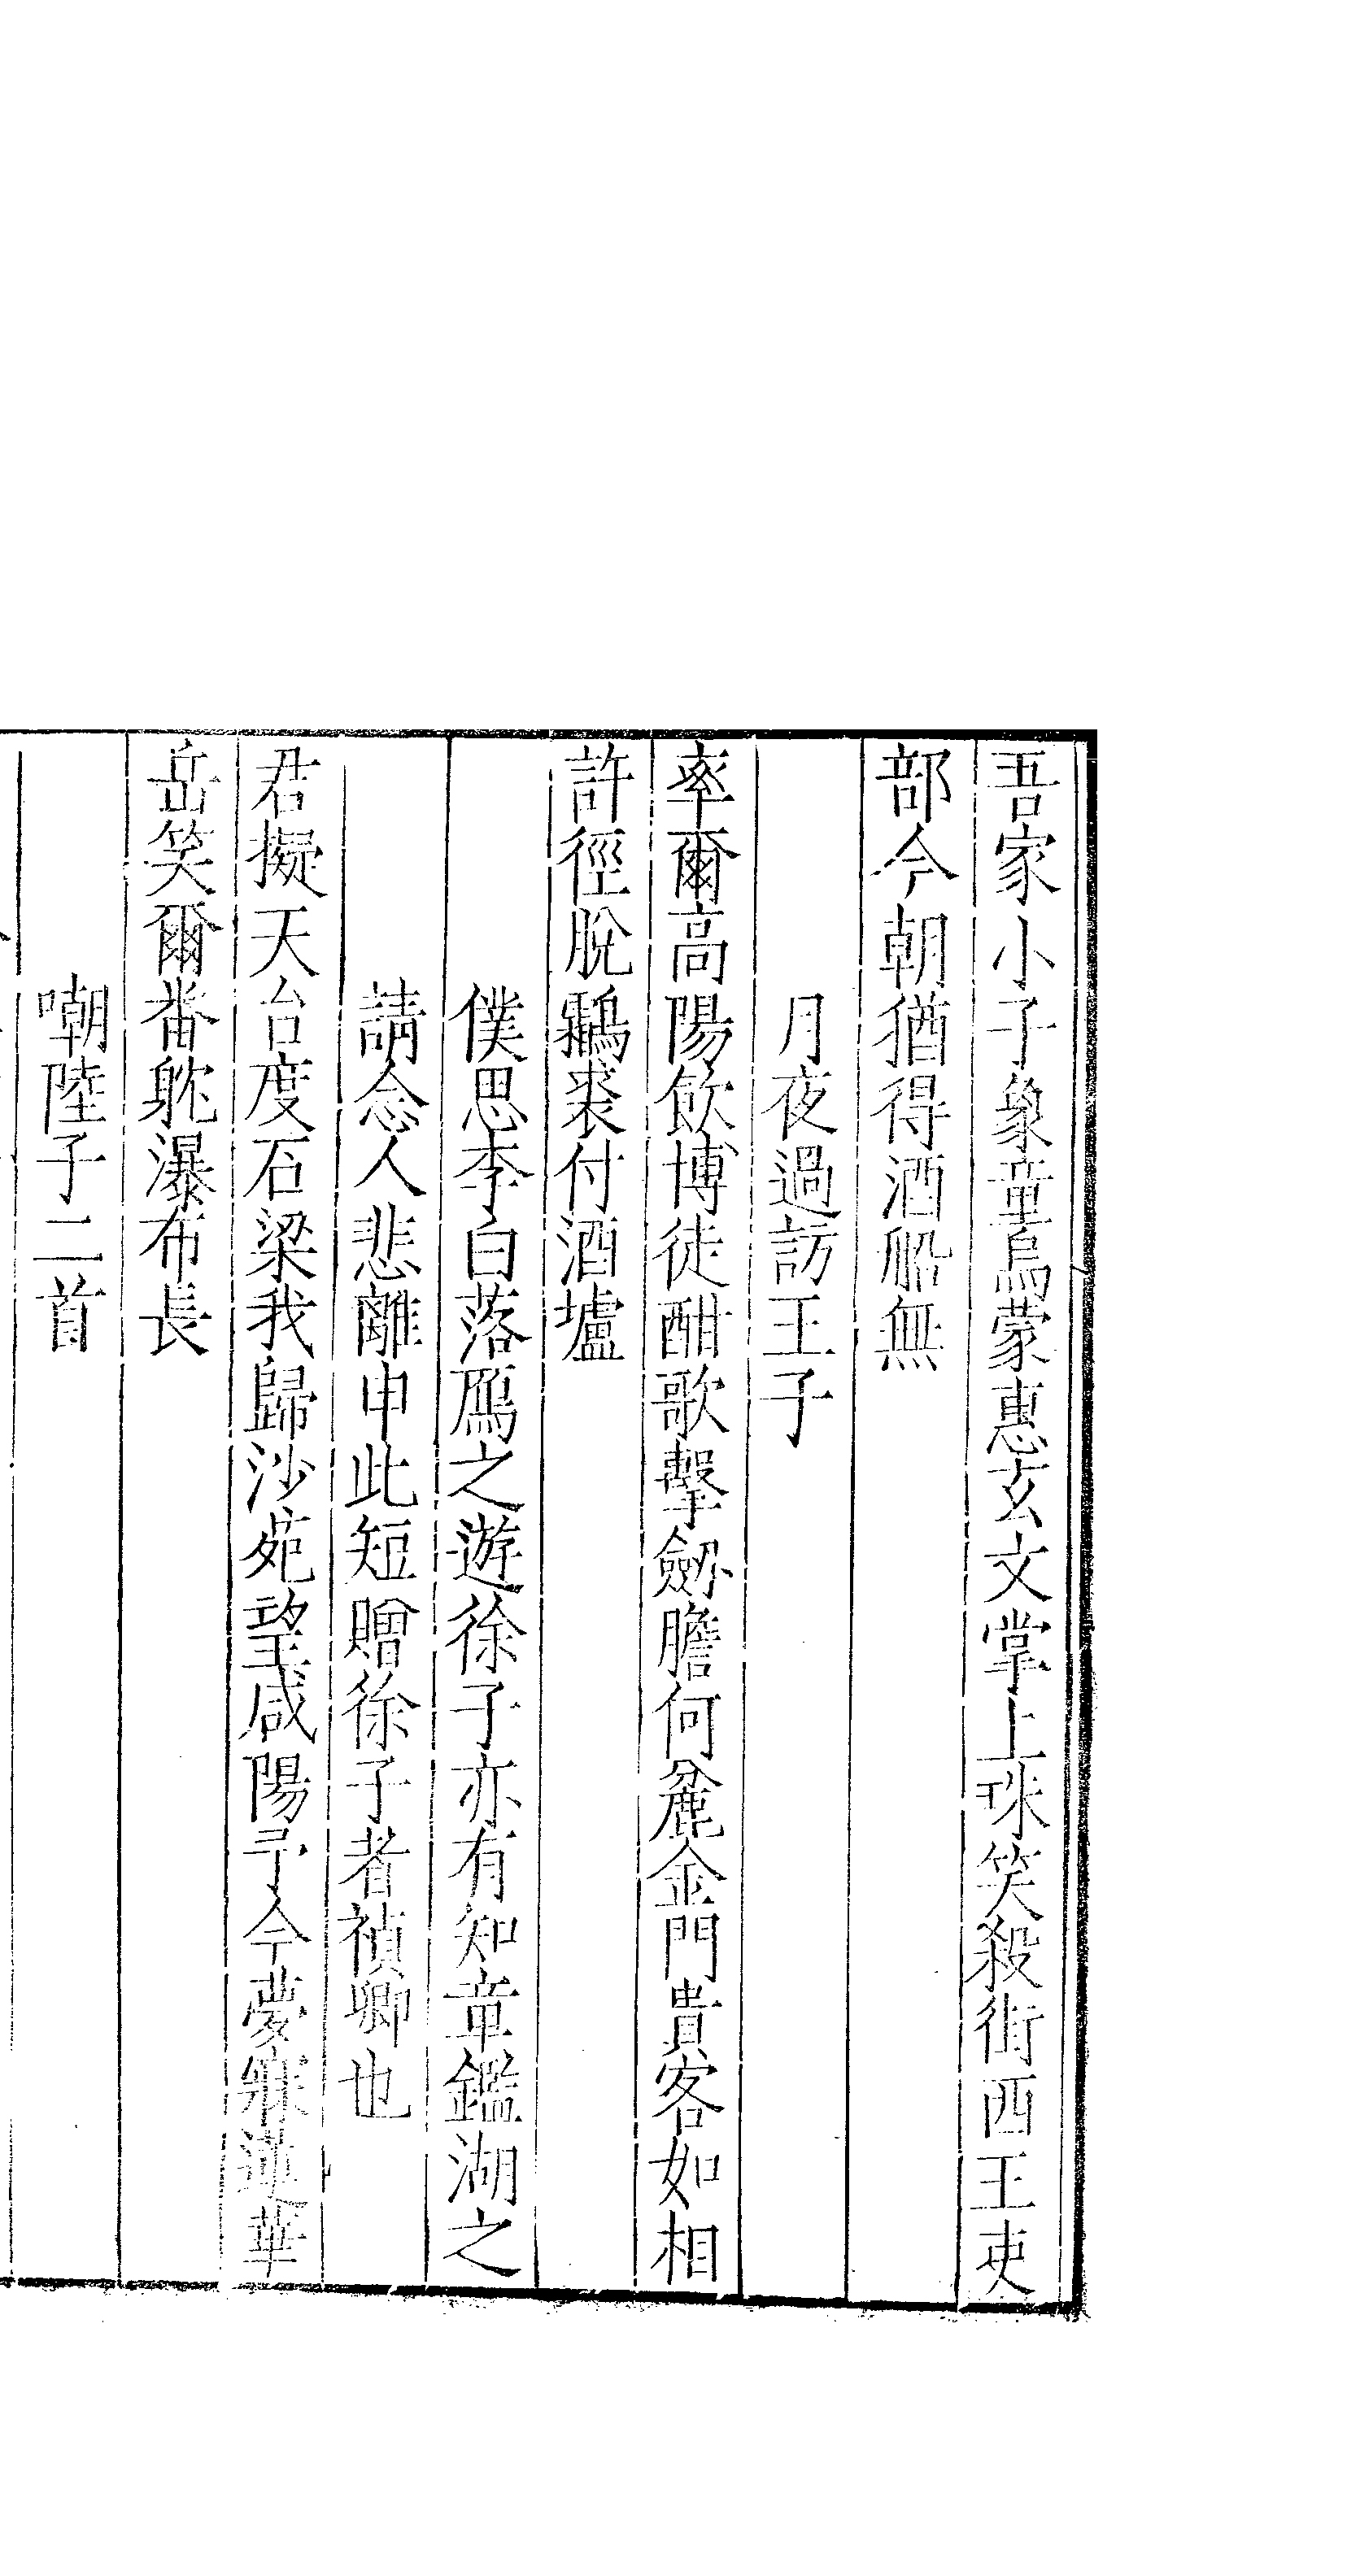 吾家小子象童烏蒙惠玄文掌上珠笑殺街西王吏
部今朝猶得酒船無
月夜過訪王子
率爾高陽飲博徒酣歌擊劒膽何麄金門貴客如相
許徑脫鷫裘付酒壚
僕思李白落鴈之遊徐子亦有知章鑑湖之
請念人悲離申此短贈徐子者禎卿也
君擬天台度石梁我歸沙苑望咸陽于今夢寐蓮華
岳笑爾番躭瀑布長
嘲陸子二首